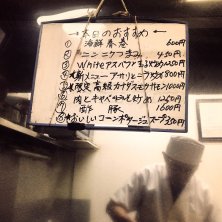 →本日のおすすめ←
① 海鮮春巻 600円
② ニンニクつまみ 450円
③ Whiteアスパラと 炒め 1250円
④ 新メニュー アサリとニラ炒め 800円
⑤ 限定高級カナダズワイガニ 1000円
⑥ 肉とキャベツみそ炒め 1250円
⑦ 豚 1600円
⑧ おいしいコーンポタージュスープ 350円